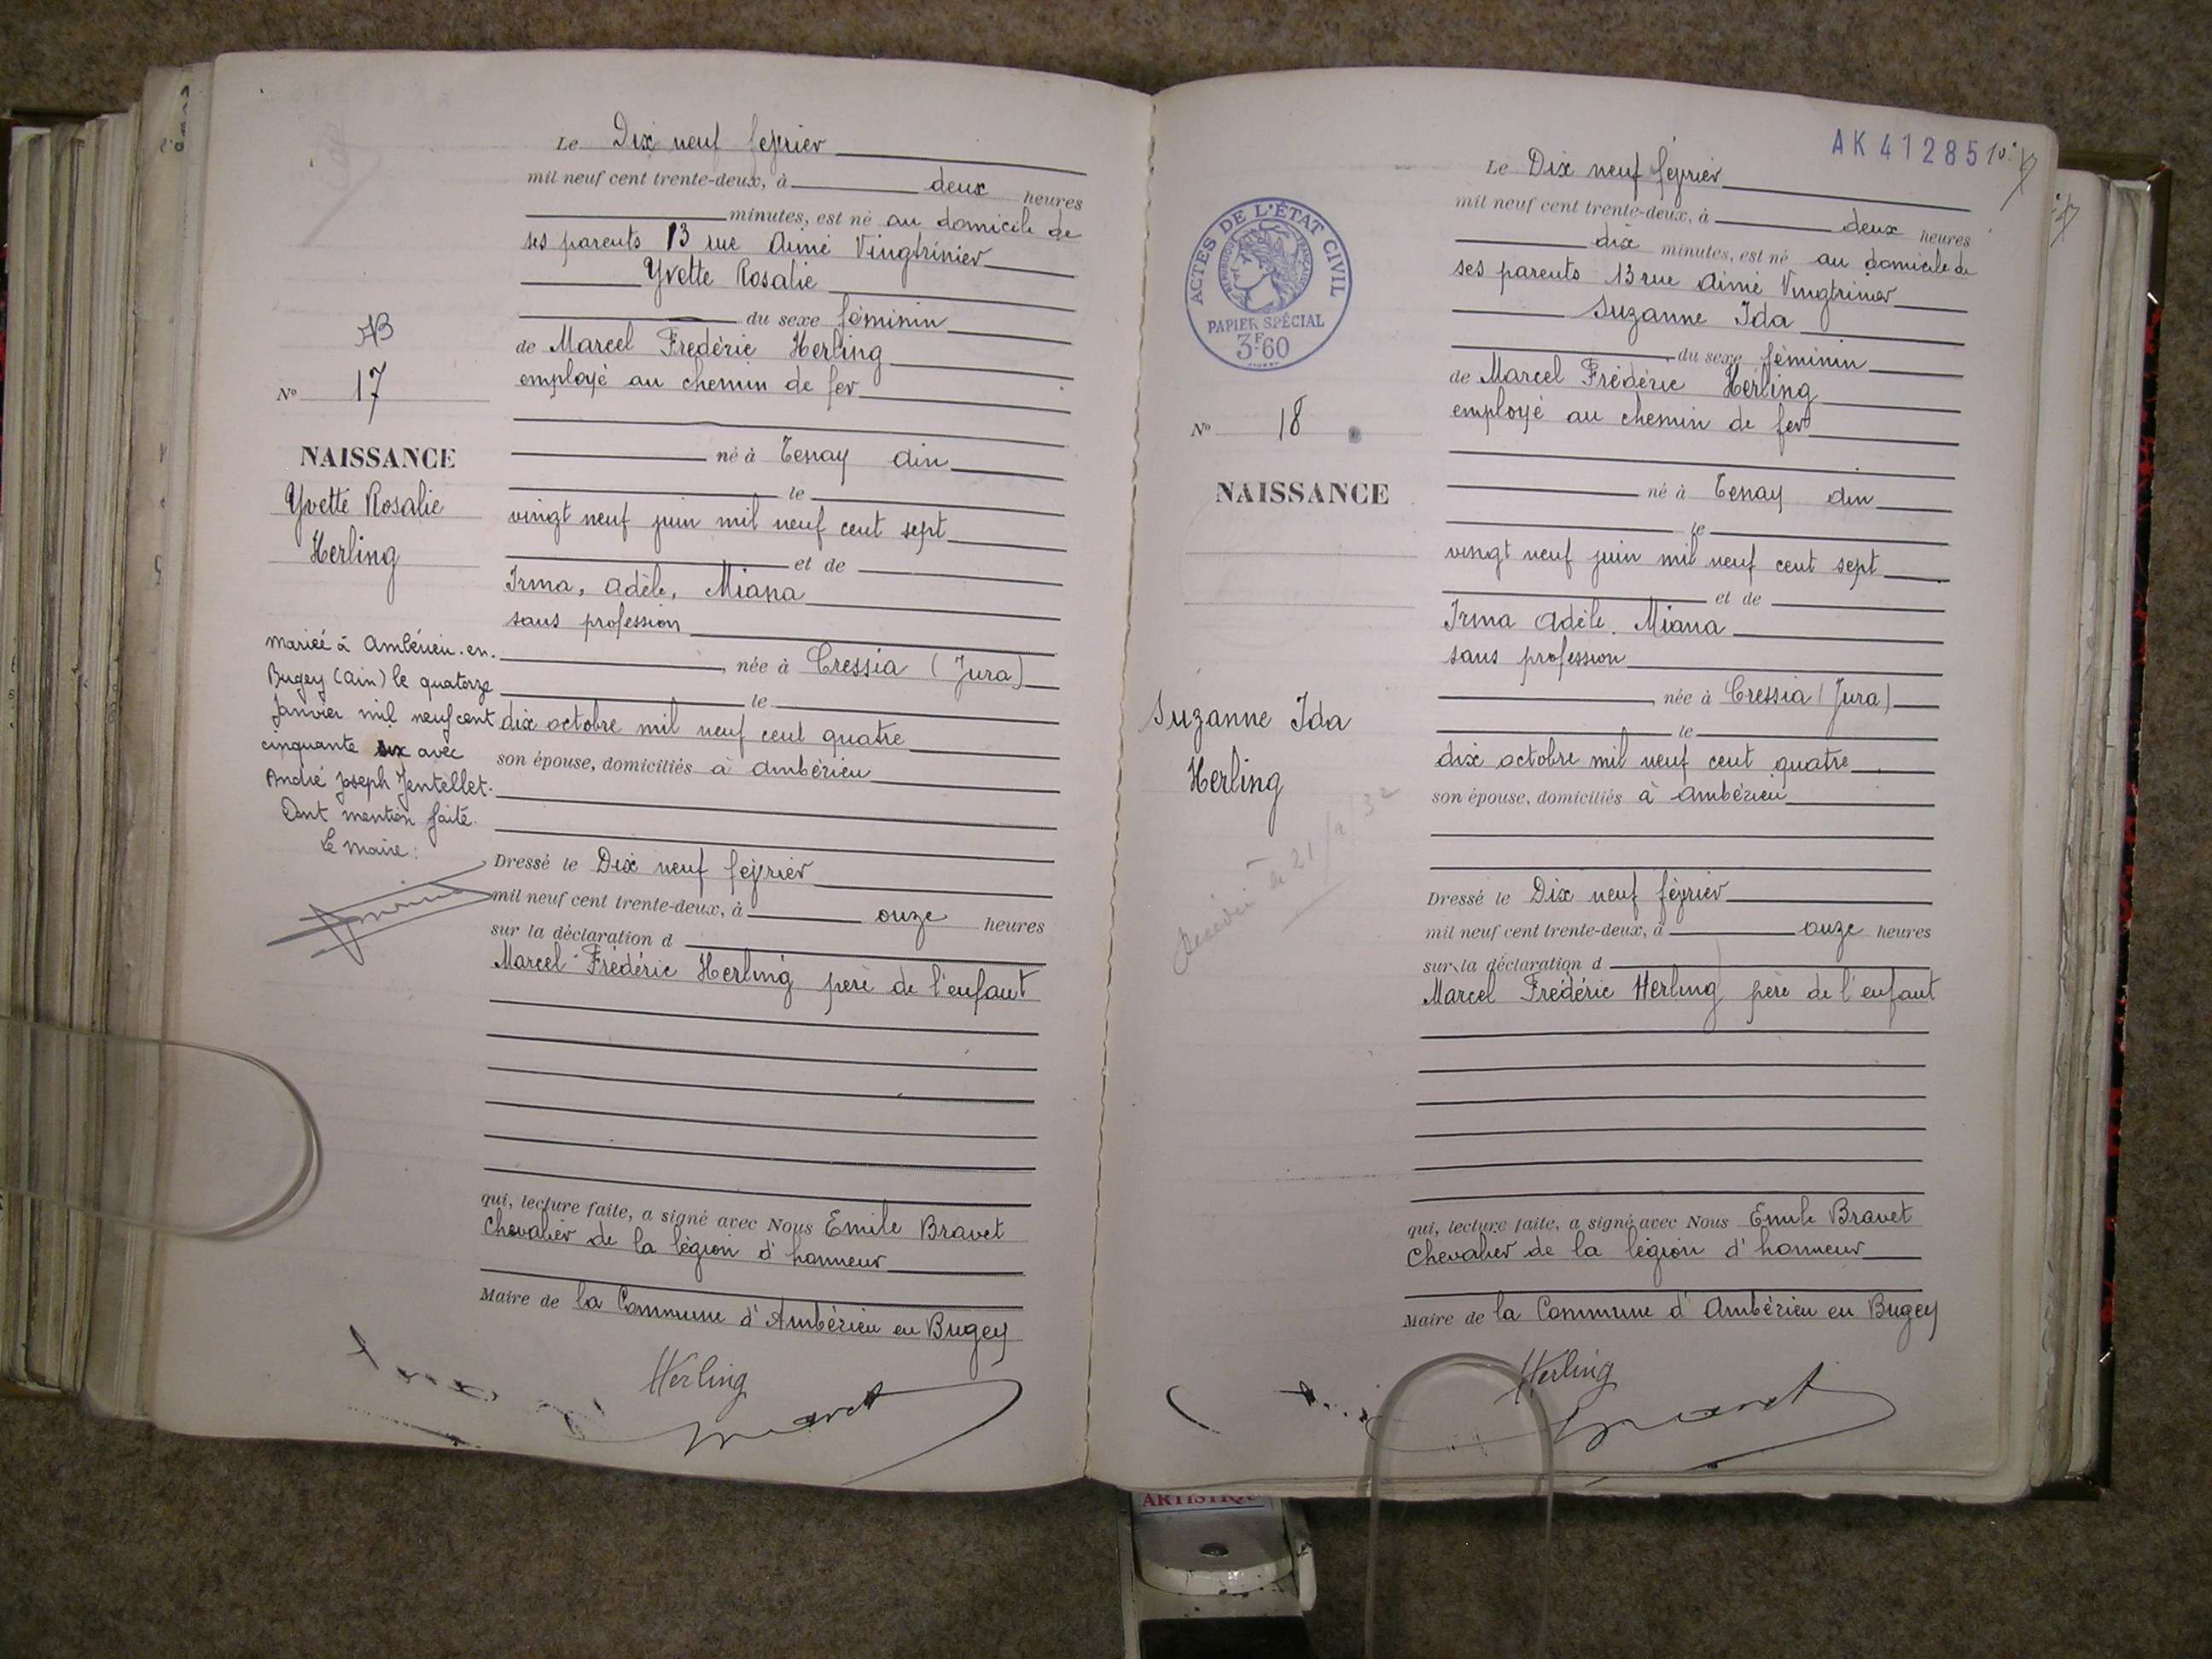 Le Dix neuf février
mil neuf cent trente-deux, à deux heures
minutes, est né au domicile de
ses parents 13 rue Aimé Vingtrinier
Yvette Rosalie
du sexe féminin
de Marcel Frédéric Herling
employé au chemin de fer
né à Tenay Ain
le
vingt neuf juin mil neuf cent sept
et de
Irma, Adèle, Miana
sans profession
, née à Cressia (Jura)
le
dix octobre mil neuf cent quatre
son épouse, domiciliés à Ambérieu
Dressé le Dix neuf février
mil neuf cent trente-deux, à onze heures
sur la déclaration d
Marcel Frédéric Herling père de l'enfant
qui, lecture faite, a signé avec Nous Emile Bravet
Chevalier de la légion d'honneur
Maire de la Commune d'Ambérieu en Bugey
Herling
Bravet
AB
No 17
NAISSANCE
Yvette Rosalie
Herling
Mariée à Ambérieu-en-
Bugey (Ain) le quatorze
Janvier mil neuf cent
cinquante six avec
André Joseph Jentellet.
Dont mention faite.
Le Maire :
AK 41285
Le Dix neuf février
mil neuf cent trente-deux, à deux heures
dix minutes, est né au domicile de
ses parents 13 rue Aimé Vingtrinier
Suzanne Ida
du sexe féminin
de Marcel Frédéric Herling
employé au chemin de fer
né à Tenay Ain
le
vingt neuf juin mil neuf cent sept
et de
Irma Adèle. Miana
sans profession
, née à Cressia (Jura)
le
dix octobre mil neuf cent quatre
son épouse, domiciliés à Ambérieu
Dressé le Dix neuf février
mil neuf cent trente-deux, à onze heures
sur la déclaration d
Marcel Frédéric Herling père de l'enfant
qui, lecture faite, a signé avec Nous Emile Bravet
Chevalier de la légion d'honneur
Maire de la Commune d'Ambérieu en Bugey
Herling
Bravet
ACTES DE L'ÉTAT CIVIL
RÉPUBLIQUE FRANÇAISE
PAPIER SPÉCIAL
3F60
No 18
NAISSANCE
Suzanne Ida
Herling
Décédée le 21/2/32
ARTISTIQU